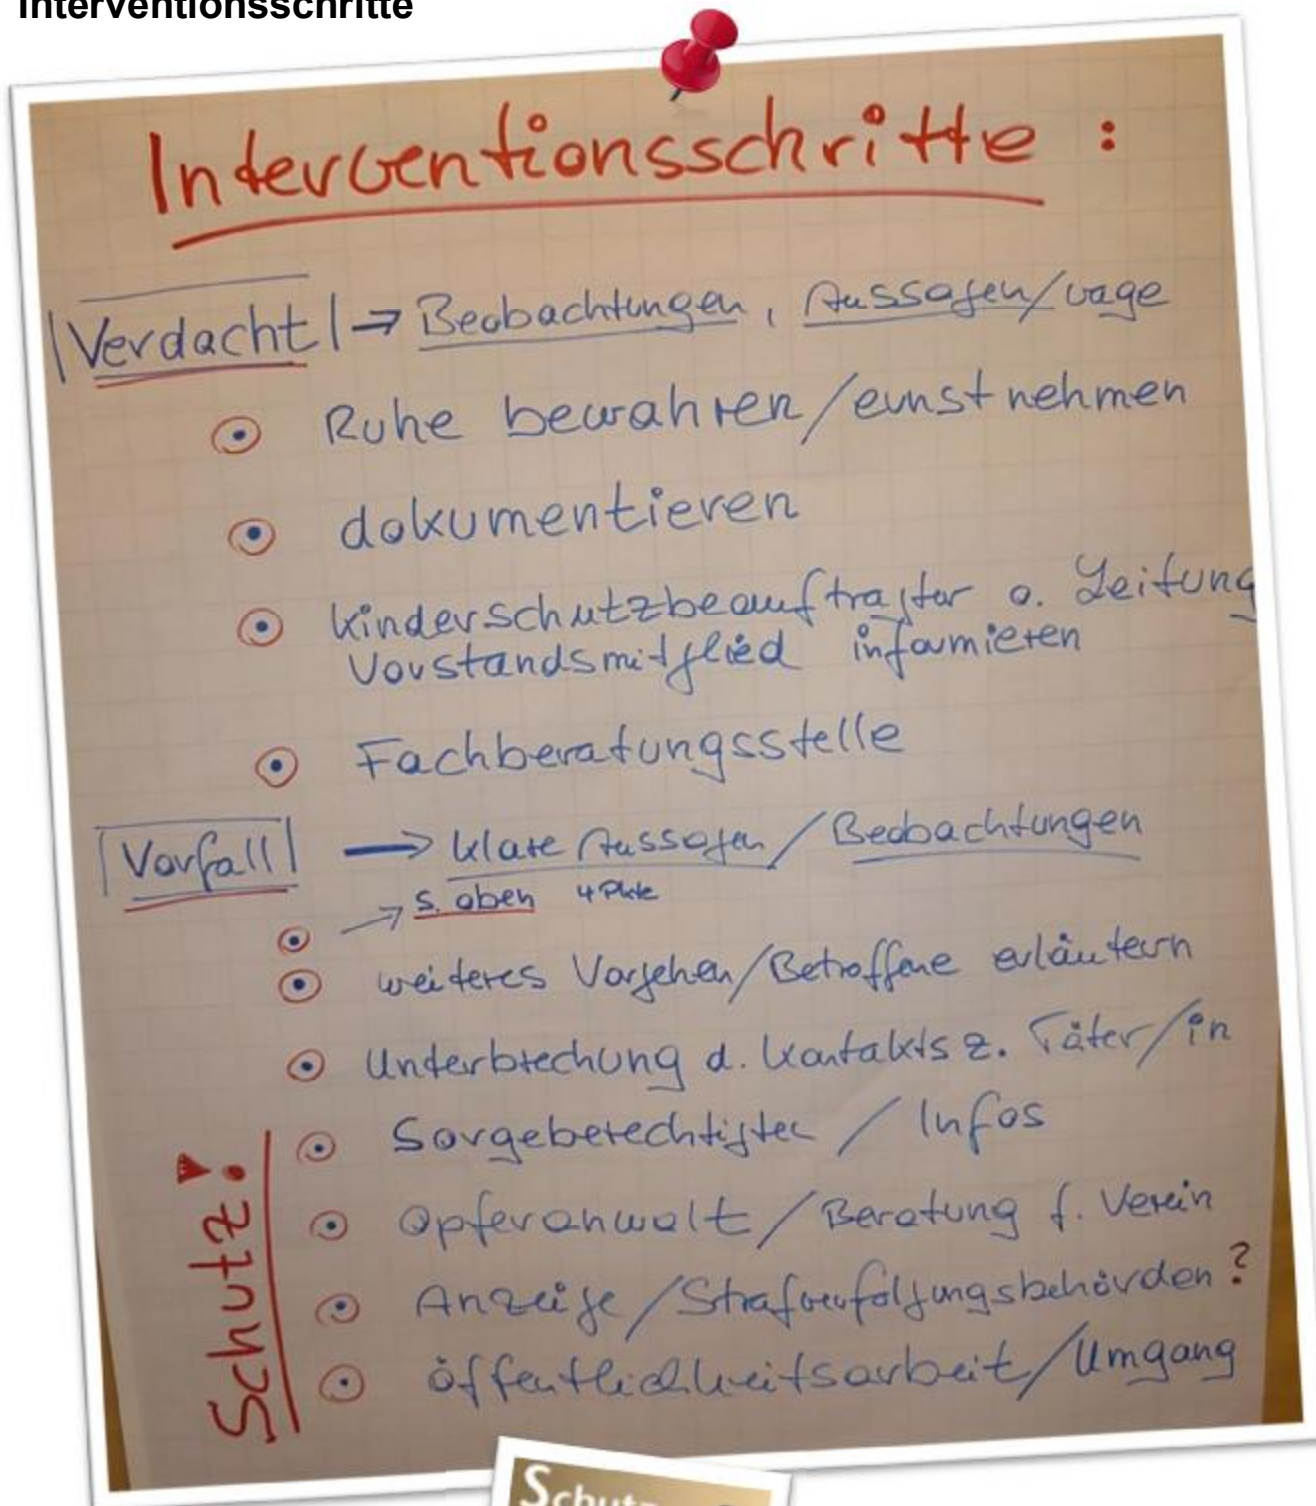 Interventionsschritte
Interventionsschritte :
Verdacht → Beobachtungen, Aussagen/vage
Ruhe bewahren/ernst nehmen
dokumentieren
Kinderschutzbeauftragter o. Leitung
Vorstandsmitglied informieren
Fachberatungsstelle
Vorfall → klare Aussagen / Beobachtungen
→ s. oben 4 Pkte
weiteres Vorgehen/Betroffene erläutern
Unterbrechung d. Kontakts z. Täter/in
Sorgeberechtigten / Infos
Opferanwalt/Beratung f. Verein
Anzeige/Strafverfolgungsbehörden?
öffentlichkeitsarbeit/Umgang
Schutz!
Schutz